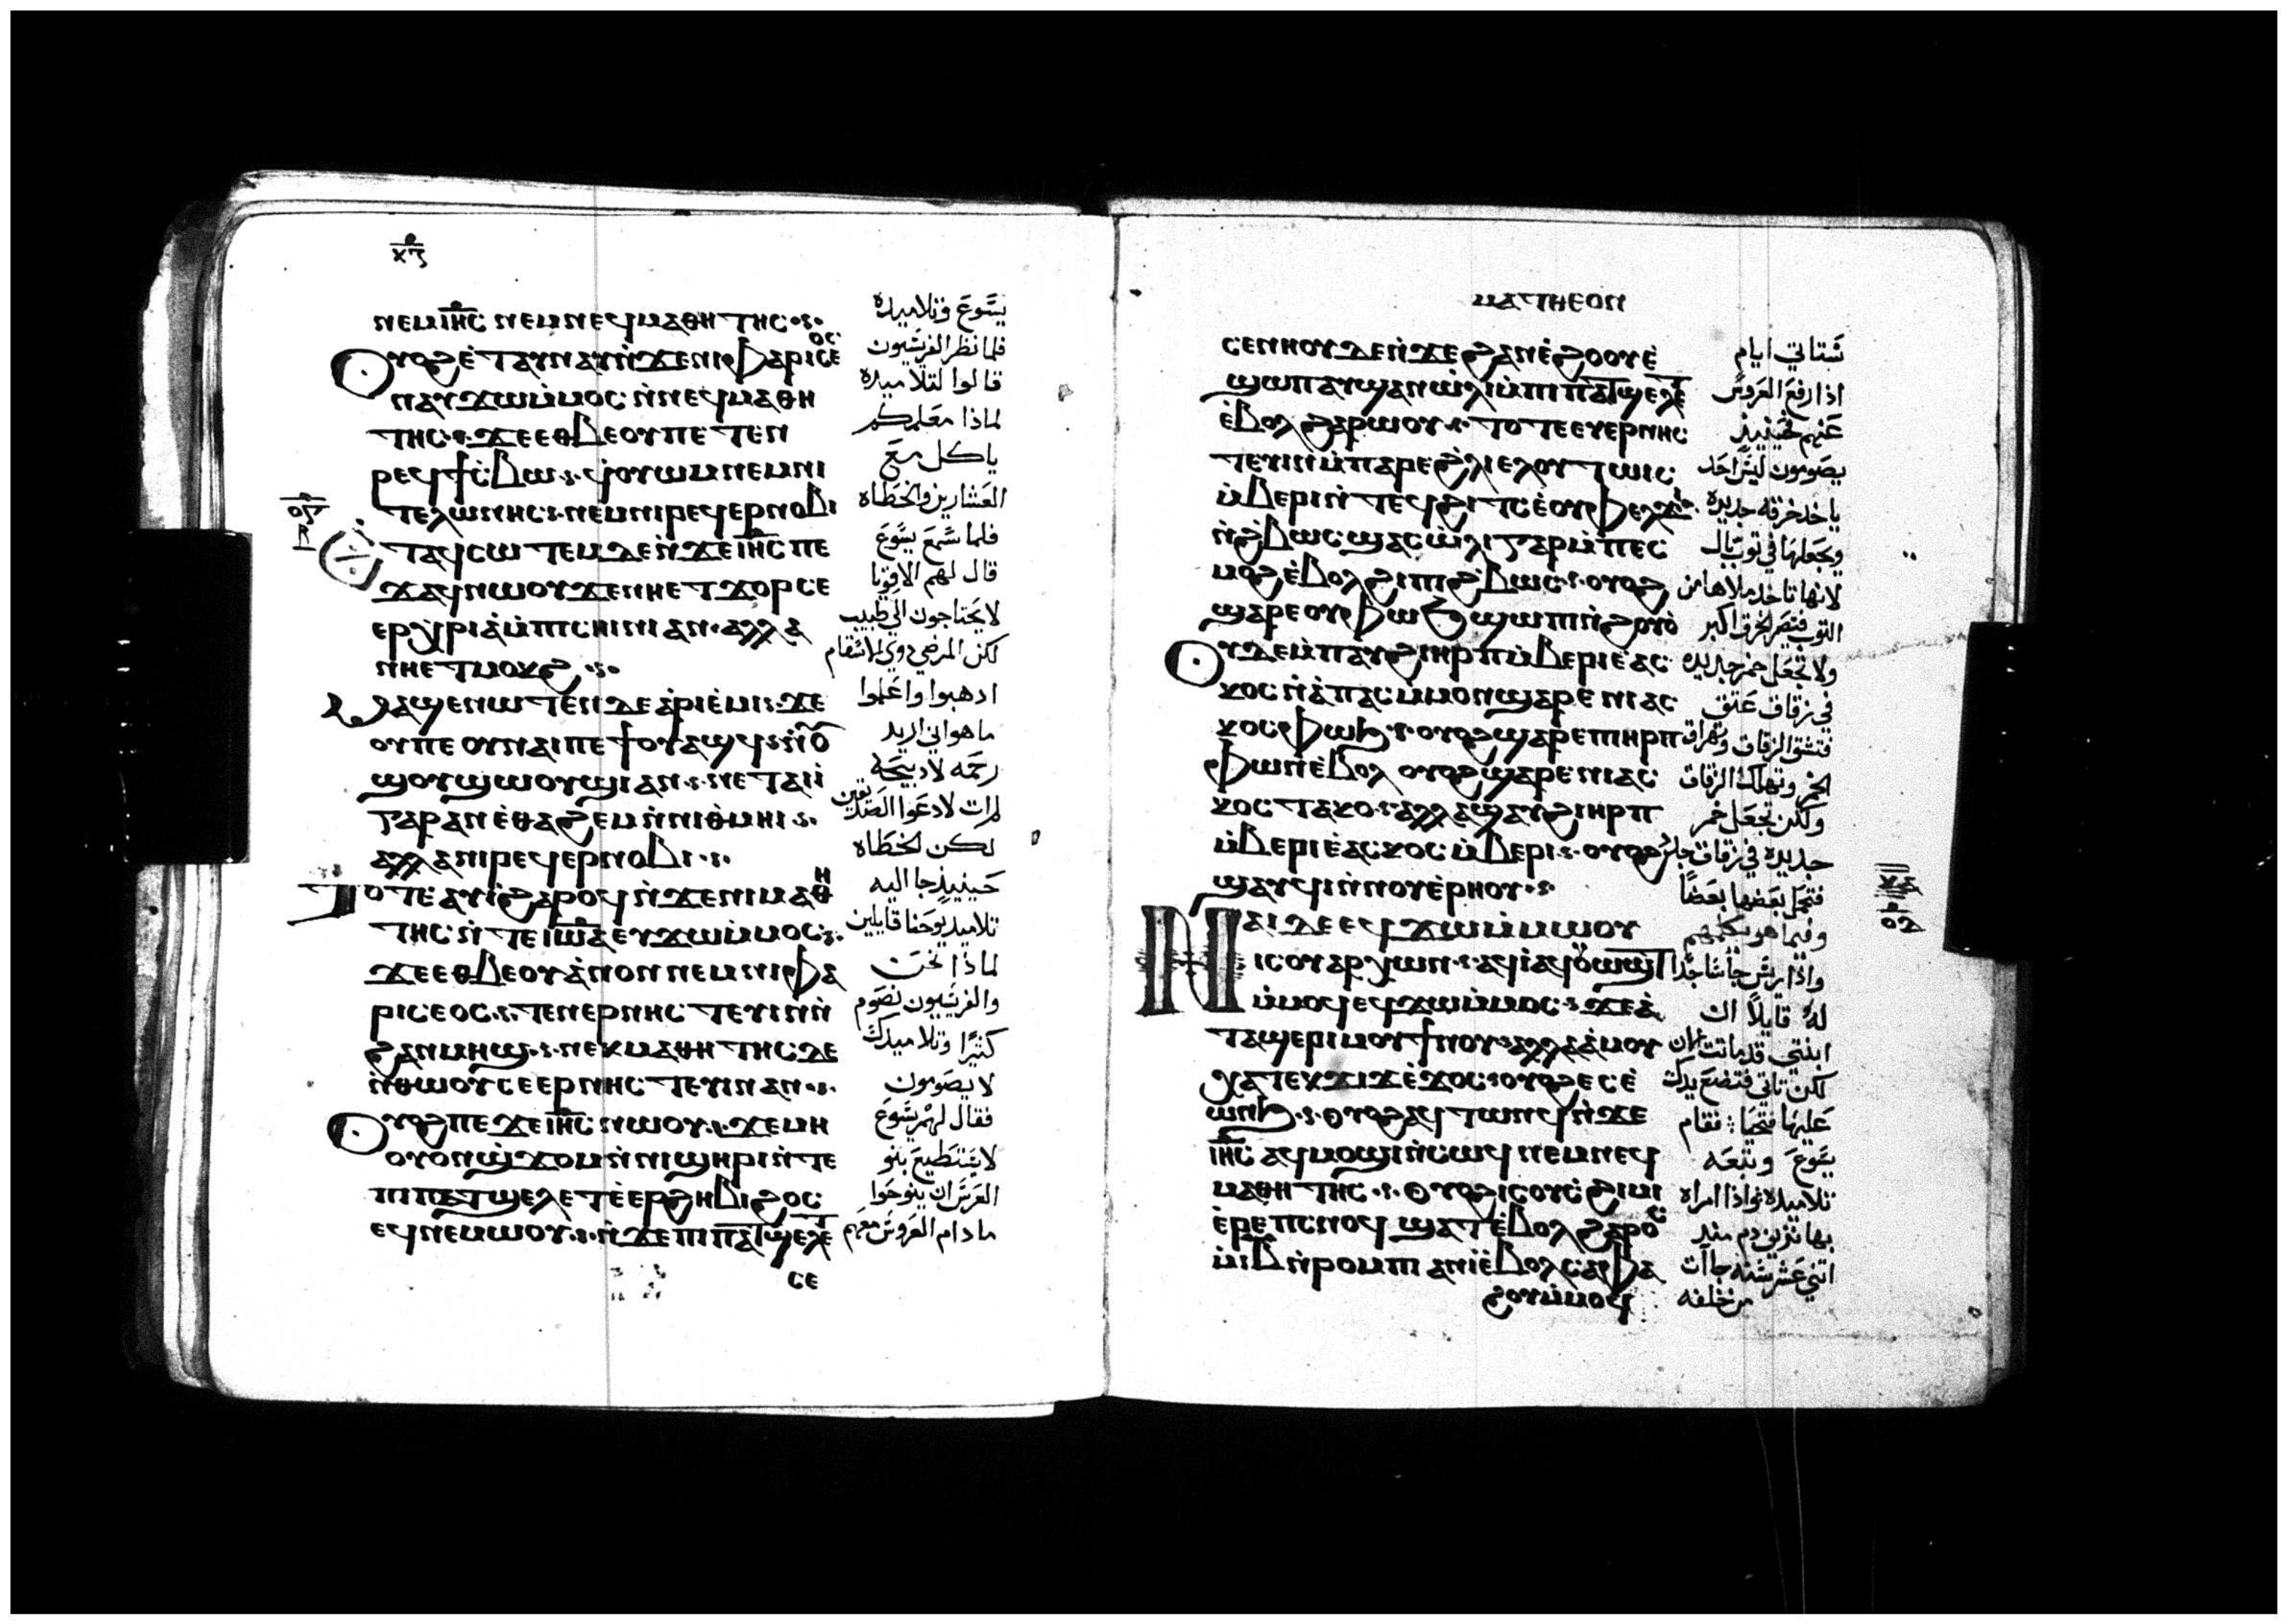 ⲛⲉⲙⲓⲏ̅ⲥ ⲛⲉⲙⲛⲉϥⲙⲁⲑⲏⲧⲏⲥ
ⲟⲩⲟϩⲉ̀ⲧⲁⲩⲛⲁⲩⲛ̀ϫⲉⲛⲓⲫⲁⲣⲓⲥⲉⲟⲥ
ⲛⲁⲩϫⲱⲙ̀ⲙⲟⲥ ⲛ̀ⲛⲉϥⲙⲁⲑⲏ
ⲧⲏⲥ ϫⲉⲉⲑⲃⲉⲟⲩⲡⲉⲧⲉⲛ
ⲣⲉϥϯⲥ̀ⲃⲱ ϥⲟⲩⲱⲙⲛⲉⲙⲛⲓ
ⲧⲉⲗⲱⲛⲏⲥ ⲛⲉⲙⲛⲓⲣⲉϥⲉⲣⲛⲟⲃⲓ
ⲉⲧⲁϥⲥⲱⲧⲉⲙⲇⲉⲛ̀ϫⲉⲓⲏ̅ⲥ ⲡⲉ
ϫⲁϥⲛⲱⲟⲩϫⲉⲛⲏⲉⲧϫⲟⲣⲥⲉ
ⲉⲣⲭⲣⲓⲁ̀ⲙ̀ⲡⲓⲥⲏⲓⲛⲓⲁⲛ ⲁⲗⲗⲁ
ⲛⲏⲉⲧⲙⲟⲕϩ
ⲙⲁϣⲉⲛⲱⲧⲉⲛⲇⲉⲁ̀ⲣⲓⲉ̀ⲙⲓ ϫⲉ
ⲟⲩⲡⲉ ⲟⲩⲛⲁⲓⲡⲉϯⲟⲩⲁϣϥ ⲛ̀ⲟ
ϣⲟⲩϣⲱⲟⲩϣⲓⲁⲛ ⲛⲉⲧⲁⲓⲓ̀
ⲅⲁⲣⲁⲛⲉ̀ⲑⲁϩⲉⲙⲛ̀ⲛⲓⲑⲙⲏⲓ
ⲁⲗⲗⲁⲛⲓⲣⲉϥⲉⲣⲛⲟⲃⲓ
ⲧⲟⲧⲉⲁⲩⲓ̀ϩⲁⲣⲟϥⲛ̀ϫⲉⲛⲓⲙⲁⲑⲏ
ⲧⲏⲥ ⲛ̀ⲧⲉⲓⲱ̅ⲁ ⲉⲩϫⲱⲙ̀ⲙⲟⲥ
ϫⲉⲉⲑⲃⲉⲟⲩⲁ̀ⲛⲟⲛ ⲛⲉⲙⲛⲓⲫⲁ
ⲣⲓⲥⲉⲟⲥ ⲧⲉⲛⲉⲣⲛⲏⲥⲧⲉⲩⲓⲛⲛ̀
ϩⲁⲛⲙⲏϣ ⲛⲉⲕⲙⲁⲑⲏⲧⲏⲥ ⲇⲉ
ⲛ̀ⲑⲱⲟⲩ ⲥⲉⲉⲣⲛⲏⲥⲧⲉⲩⲓⲛⲁⲛ
ⲟⲩⲟϩⲡⲉϫⲉⲓⲏ̅ⲥ ⲛⲱⲟⲩ ϫⲉⲙⲏ
ⲟⲩⲟⲛϣ̀ϫⲟⲙⲛ̀ⲛⲓϣⲏⲣⲓⲛ̀ⲧⲉ
ⲡⲓⲡⲁⲧϣⲉⲗⲉⲧⲉ̀ⲉⲣϩⲏⲃⲓϩⲟⲥ
ⲉϥⲛⲉⲙⲱⲟⲩ ⲛ̀ϫⲉⲡⲓⲡⲁⲧϣⲉⲗⲉⲧ
ⲥⲉ
يسوع وتلاميده
فلما نظر الفريسيون
قالوا لتلاميده
لماذا معلمكم
ياكل مع
العشارين والخطاه
فلما سمع يسوع
قال لهم الاقويا
لا يحتاجون الي طبيب
لكن المرضي دوي الاسقام
ادهبوا واعلموا
ما هو اني اريد
رحمه لا دبيحه
لم ات لادعوا الصديقين
لكن الخطاه
حينيذ جا اليه
تلاميد يوحنا قايلين
لماذا نحن
والفريسيون نصوم
كثيرًا وتلاميدك
لا يصومون
فقال لهم يسوع
لا يستطيع بنو
العرس ان ينوحوا
ما دام العروس معهم
ⲙⲁⲧⲑⲉⲟⲛ
ⲥⲉⲛⲏⲟⲩ ⲇⲉⲛ̀ϫⲉϩⲁⲛⲉ̀ϩⲟⲟⲩⲉ̀
ϣⲱⲡⲁⲩϣⲁⲛⲱ̀ⲗⲓⲙ̀ⲡⲓⲡⲁⲧϣⲉⲗⲉⲧ
ⲉ̀ⲃⲟⲗϩⲁⲣⲱⲟⲩ ⲧⲟⲧⲉⲉⲩⲉⲣⲛⲏⲥ
ⲧⲉⲩⲓⲛⲙ̀ⲡⲁⲣⲉϩ̀ⲗⲓⲉⲗⲟⲩⲧⲱⲓⲥ
ⲙ̀ⲃⲉⲣⲓⲛ̀ⲧⲉϥϩⲓⲧⲥⲉ̀ⲟⲩⲫⲉⲗϫⲓ
ⲛ̀ϩ̀ⲃⲱⲥ ϣⲁⲥⲱ̀ⲗⲓⲅⲁⲣⲙ̀ⲡⲉⲥ
ⲙⲟϩⲉ̀ⲃⲟⲗϩⲓⲡⲓϩ̀ⲃⲱⲥ ⲟⲩⲟϩ
ϣⲁⲣⲉⲟⲩⲫⲱϧϣⲱⲡⲓⲛ̀ϩⲟⲩⲟ̀
ⲟⲩⲇⲉⲙ̀ⲡⲁⲩϩⲓⲏⲣⲡⲙ̀ⲃⲉⲣⲓⲉ̀ⲁⲥ
ⲕⲟⲥ ⲛ̀ⲁ̀ⲡⲁⲥ ⲙ̀ⲙⲟⲛϣⲁⲣⲉⲛⲓⲁⲥ
ⲕⲟⲥⲫⲱϧ ⲟⲩⲟϩϣⲁⲣⲉⲡⲓⲏⲣⲡ
ⲫⲱⲛⲉ̀ⲃⲟⲗ ⲟⲩⲟϩϣⲁⲣⲉⲛⲓⲁⲥ
ⲕⲟⲥ ⲧⲁⲕⲟ ⲁⲗⲗⲁϣⲁⲩϩⲓⲏⲣⲡ
ⲙ̀ⲃⲉⲣⲓⲉ̀ⲁⲥⲕⲟⲥ ⲙ̀ⲃⲉⲣⲓ ⲟⲩⲟϩ
ϣⲁⲩϥⲓⲛ̀ⲛⲟⲩⲉ̀ⲣⲏⲟⲩ
ⲛⲁⲓ ⲇⲉⲉϥϫⲱⲙ̀ⲙⲱⲟⲩ
ⲓⲥⲟⲩⲁⲣⲭⲱⲛ ⲁϥⲓ̀ⲁϥⲟⲩⲱϣⲧ
ⲙ̀ⲙⲟϥⲉϥϫⲱⲙ̀ⲙⲟⲥ ϫⲉⲁ̀
ⲧⲁϣⲉⲣⲓⲙⲟⲩϯⲛⲟⲩ ⲁⲗⲗⲁⲁ̀ⲙⲟⲩ
ⲭⲁⲧⲉⲕϫⲓϫⲉ̀ϫⲟⲥ ⲟⲩⲟϩⲉⲥⲉ̀
ⲱⲛϧ ⲟⲩⲟϩⲁϥⲧⲱⲛϥⲛ̀ϫⲉ
ⲓⲏ̅ⲥ ⲁϥⲙⲟϣⲓⲛ̀ⲥⲱϥⲛⲉⲙⲛⲉϥ
ⲙⲁⲑⲏⲧⲏⲥ ⲟⲩⲟϩⲓⲥⲟⲩⲥ̀ϩⲓⲙⲓ
ⲉ̀ⲣⲉⲡⲥⲛⲟϥ ϣⲁⲧⲉ̀ⲃⲟⲗϩⲁⲣⲟⲥ
ⲙ̀ⲓⲃⲛ̀ⲣⲟⲙⲡⲓ ⲁⲥⲓ̀ⲉ̀ⲃⲟⲗⲥⲁⲫⲁ
ϩⲟⲩⲙ̀ⲙⲟϥ
ستاتي ايام
اذا رفع العروس
عنهم فحينيذ
يصومون ليس احد
ياخد خرقه جديده
ويجعلها في توب بال
لانها تاخد ملاها من
التوب فتصير الخرق اكبر
ولا تجعل خمر جديده
في زقاق عتق
فتشق الزقاق وتهراق
الخمر وتهلك الزقاق
ولكن تجعل خمر
جديده في زقاق جدد
فتحمل بعضها بعضًا
وفيما هو يكلمهم
واذا ريس جا ساجدًا
له قايلًا ان
ابنتي قد ماتت الان
لكن تاتي فتضع يدك
عليها فتحيا فقام
يسوع وتبعه
تلاميده واذا امراه
بها نزيف دم منذ
اتني عشر سنه جات
من خلفه